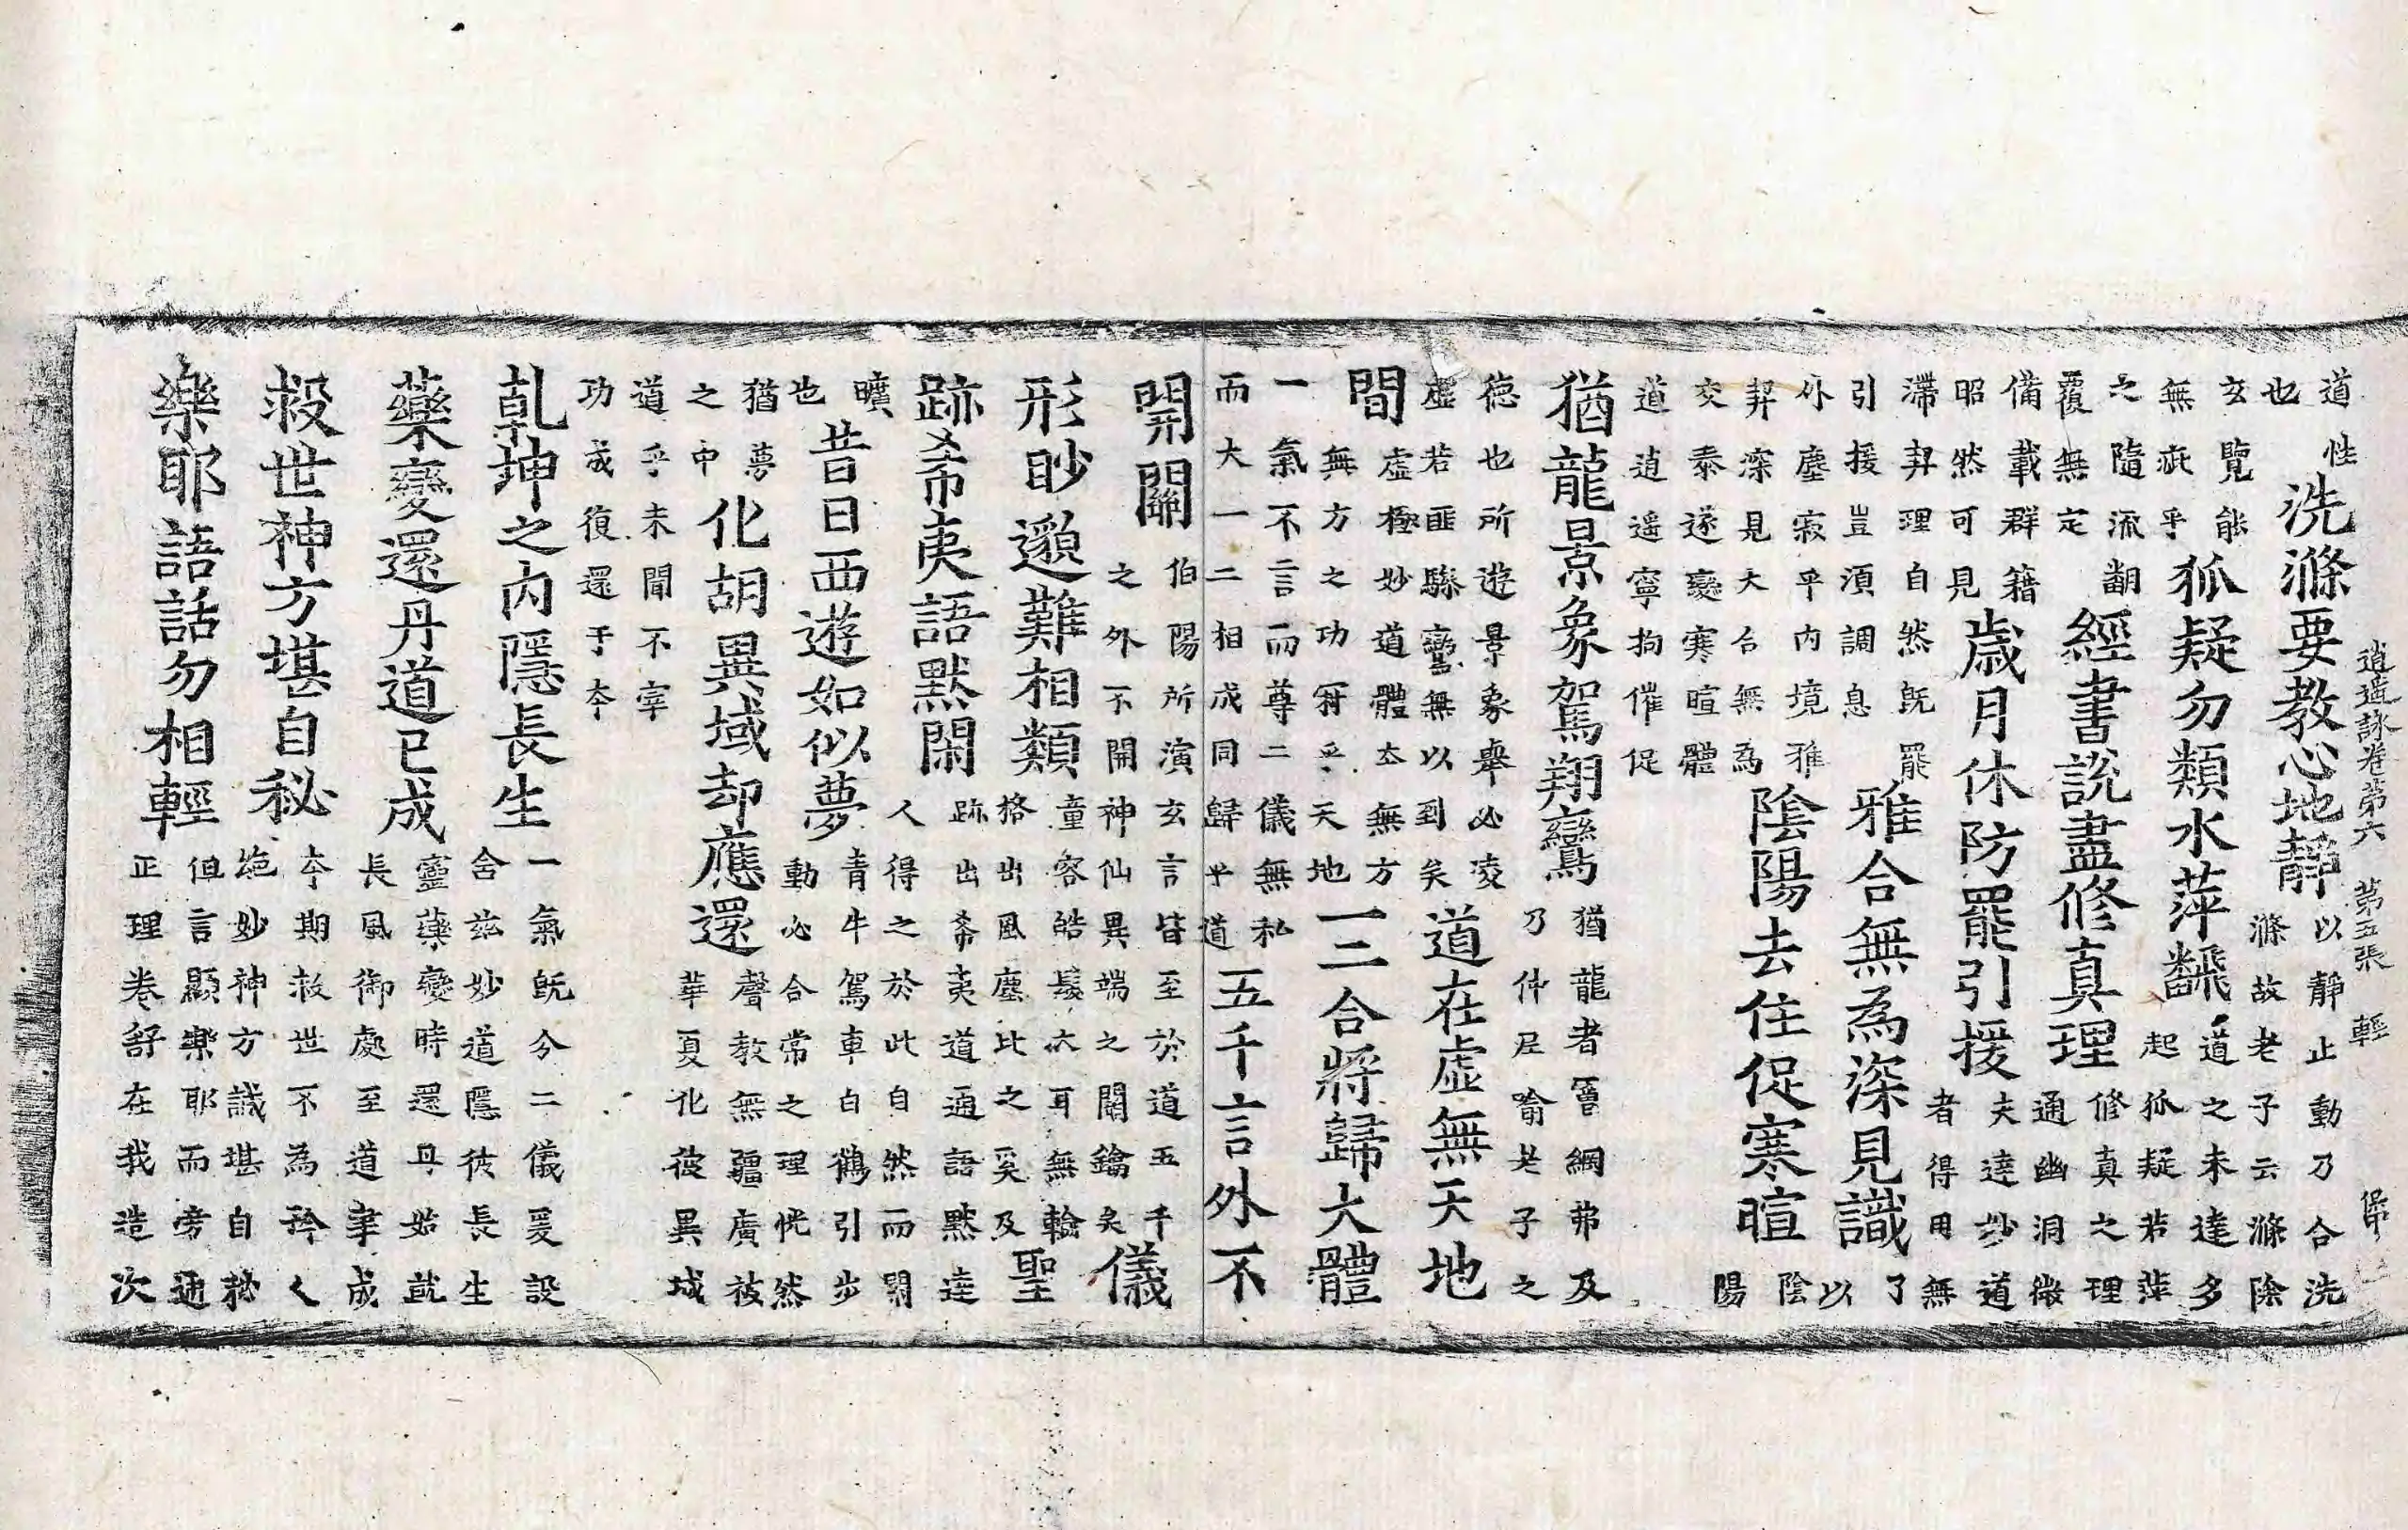 逍遙詠卷第六 第五張 輕
道性也洗滌要教心地靜以靜止動乃合洗滌故老子云滌除
玄覽能無疵乎狐疑勿類水萍飜道之未達多起狐疑若萍
之隨流翻覆無定經書說盡修真理修真之理通幽洞微
備載群籍昭然可見歲月休防罷引援夫達妙道者得用無
滯契理自然既罷引援豈須調息雅合無為深見識了以
外塵寂乎內境雅契深見大合無為陰陽去住促寒暄陰陽
交泰遂變寒暄體道逍遙寧拘催促
猶龍景象駕翔鸞猶龍者罾網弗及乃仲尼喻老子之
德也所遊景象舉必凌虛若匪驂鸞無以到矣道在虛無天地
間虛極妙道體夳無方無方之功符乎天地一二合將歸大體
一氣不言而尊二儀無私而大一二相成同歸乎道五千言外不
開關伯陽所演玄言皆至於道五千之外不開神仙異端之關鑰矣儀
形眇邈難相類童容皓髮大耳無輪格出風塵比之奚及聖
跡希夷語默閑跡出希夷道通語默達人得之於此自然而閑
曠也昔日西遊如似夢青牛駕車白鶴引步動必合常之理恍然
猶夢之中化胡異域却應還聲教無疆廣被華夏化彼異域
道乎未聞不宰功成復還于本
乾坤之內隱長生一氣既分二儀爰設含茲妙道隱彼長生
藥變還丹道已成靈藥變時還丹始就長風御處至道聿成
救世神方堪自秘本期救世不為矜人絕妙神方誠堪自秘
樂耶語話勿相輕但言顯樂耶而旁通正理卷舒在我造次